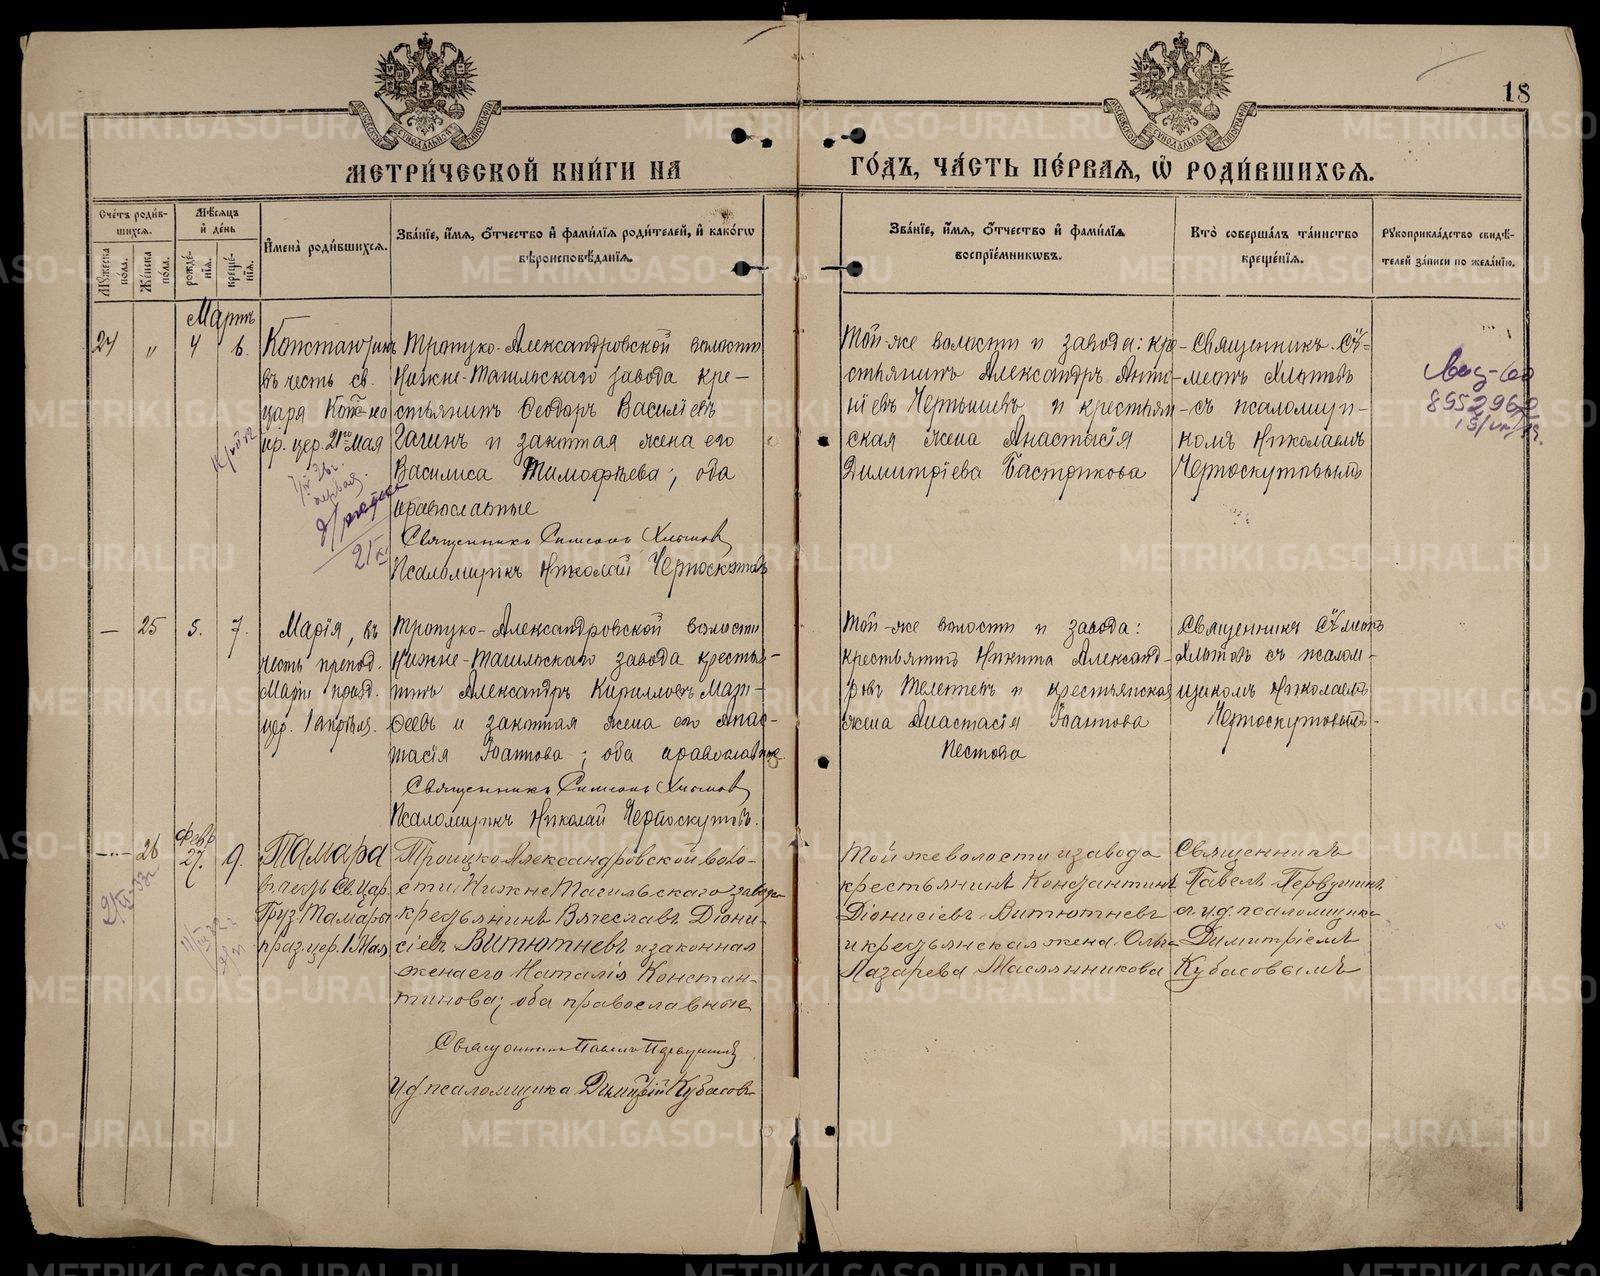 18
МЕТРИ́ЧЕСКОЙ КНИ́ГИ НА
ГО́ДЪ, ЧА́СТЬ ПЕ́РВАѦ, Ѽ РОДИ́ВШИХСѦ.
Сче́тъ роди́в-
шихсѧ.
Мꙋжеска по́ла.
Же́нска по́ла.
Мѣ́сѧцъ и҆ де́нь
рожде́-нїѧ.
креще́-нїѧ.
И҆мена̀ роди́вшихсѧ.
Зва́нїе, и҆́мѧ, ѻ҆́тчество и҆ фами́лїѧ роди́телей, и҆ како́гѡ
вѣроисповѣ́данїѧ.
Зва́нїе, и҆́мѧ, ѻ҆́тчество и҆ фами́лїѧ
воспрїе́мникѡвъ.
Кто̀ соверша́лъ та́инство
креще́нїѧ.
Рꙋкоприкла́дство свидѣ́-
телей за́писи по жела́нїю.
Мартъ
24 " 4 6.
Константинъ
въ честь св.
царя Конст-на
пр. цер. 21го мая
Троицко-Александровской волости
Нижне-Тагильскаго завода кре-
стьянинъ Ѳеодоръ Василіевъ
Гагинъ и законная жена его
Василиса Тимофѣева; оба
православные
Священникъ Симеонъ Хлыновъ
Псаломщикъ Николай Черноскутовъ
Той-же волости и завода: кре-
стьянинъ Александръ Анто-
ніевъ Чернышевъ и крестьян-
ская жена Анастасія
Димитріева Бастрикова
Священникъ Сѵ-
меонъ Хлыновъ
съ псаломщи-
комъ Николаемъ
Черноскутовымъ
— 25 5. 7.
Марія, въ
честь препод.
Маріи празд.
цер. 1 апрѣля.
Троицко-Александровской волости
Нижне-Тагильскаго завода крестья-
нинъ Александръ Кирилловъ Мат-
ѳеевъ и законная жена его Анас-
тасія Іоаннова; оба православные
Священникъ Симеонъ Хлыновъ
Псаломщикъ Николай Черноскутовъ.
Той-же волости и завода:
крестьянинъ Никита Александ-
ровъ Телегнев и крестьянская
жена Анастасія Іоаннова
Пестова
Священникъ Сѵмеонъ
Хлыновъ съ псалом-
щикомъ Николаемъ
Черноскутовымъ
Февр
26 27. 9.
Тамара
въ честь Св. Цар.
Груз. Тамары
праз. цер. 1 Мая
Троицко Александровской воло-
сти, Нижне Тагильскаго завода
крестьянинъ Вячеславъ Діони-
сіевъ Витютневъ и законная
жена его Наталія Констан-
тинова; оба православные
Священникъ Павелъ Первушинъ
И.д. псаломщика Димитрій Кубасовъ
Той же волости и завода
крестьянинъ Константинъ
Діонисіевъ Витютневъ
и крестьянская жена Ольга
Лазарева Маслянникова
Священникъ
Павелъ Первушинъ
с и.д. псаломщика
Димитріемъ
Кубасовымъ
METRIKI.GASO-URAL.RU